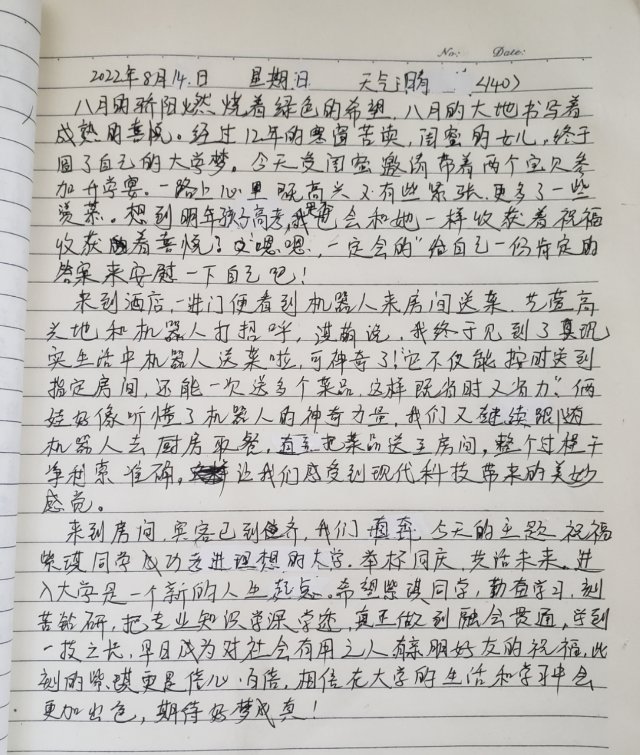 No: Date:
2022年8月14.日 星期日 天气:晴 <140>
八月的骄阳燃烧着绿色的希望,八月的大地书写着
成熟的喜悦。经过12年的寒窗苦读,闺蜜的女儿,终于
圆了自己的大学梦。今天受闺蜜邀请带着两个宝贝参
加升学宴。一路上心里既高兴又有些紧张,更多了一些
羡慕。想到明年孩子高考,我也会和她一样收获着祝福
收获着喜悦?"嗯嗯,一定会的"给自己一份肯定的
答案来安慰一下自己吧!
来到酒店,一进门便看到机器人来房间送菜,艺萱高
兴地和机器人打招呼,淇翰说,我终于见到了真现
实生活中机器人送菜啦,可神奇了!"它不仅能按时送到
指定房间,还能一次送多个菜品,这样既省时又省力"。俩
娃好像听懂了机器人的神奇力量,我们又继续跟随
机器人去厨房取餐,直至把菜品送至房间,整个过程干
净利索准确,让我们感受到现代科技带来的美妙
感觉。
来到房间,宾客已到齐,我们直奔今天的主题祝福
柴琪同学成功走进理想的大学。举杯同庆,共话未来。进
入大学是一个新的人生起点。希望柴琪同学,勤奋学习,刻
苦钻研,把专业知识学深学透,真正做到融会贯通,学到
一技之长,早日成为对社会有用之人有亲朋好友的祝福,此
刻的柴琪更是信心百倍,相信在大学的生活和学习中会
更加出色,期待好梦成真!